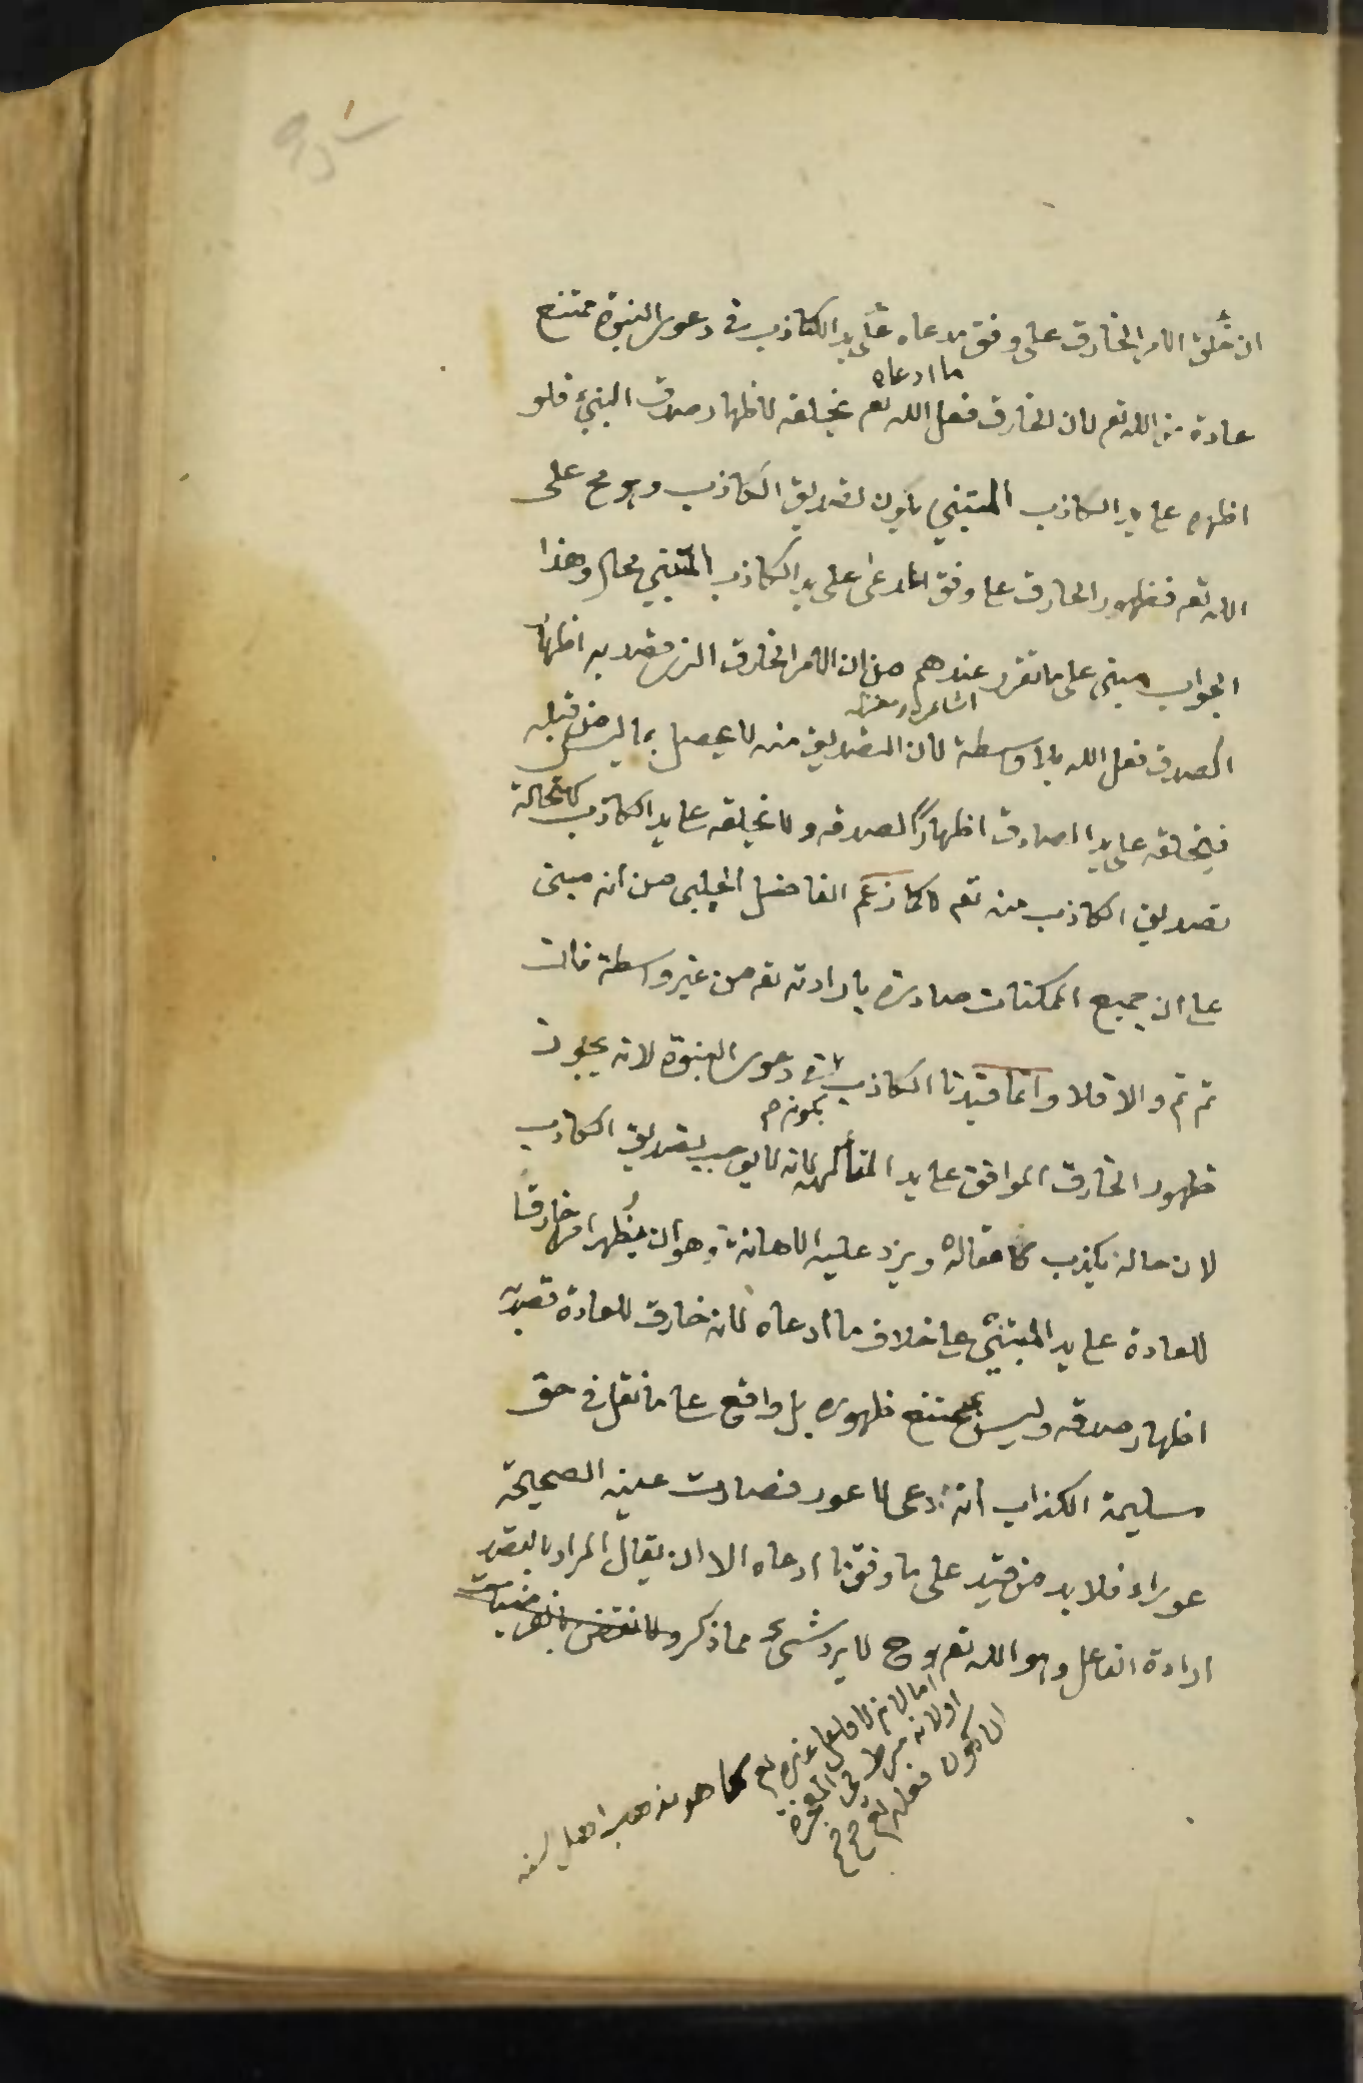 ان خلق الامر الخارق على وفق مدعاه على يد الكاذب فى دعوى النبوة ممتنع
ما ادعاه
عادة من الله تعم لان الخارق فعل الله تعم يخلقه لاظهار صدق النبىء فلو
اظهره على يد الكاذب المتنبي يكون لتصديق الكاذب وهو مح على
الله تعم فظهور الخارق على وفق المدعى على يد الكاذب المتنبي محال وهذا
الجواب مبنى على ما تقرر عندهم من ان الامر الخارق الذى قصد به اظها
الصدق فعل الله بلا واسطة لان التصديق منه لا يحصل بما ليس من قبله
فيخلقه على يد الصادق اظهاراً لصدقه ولا يخلقه على يد الكاذب لاستحالة
تصديق الكاذب منه تعم لا كما زعم الفاضل الجلبى من انه مبنى
على ان جميع الممكنات صادرة بارادته تعم من غير واسطة فان
تم تم والا فلا وانما قيدنا الكاذب فى دعوى النبوة لانه يجوز
ظهور الخارق الموافق على يد المتأله لانه لا يوجب تصديق الكاذب
لان حاله يكذب مقاله ويرد عليه الاهانة وهو ان يظهر امر خارقا
للعادة على يد المتنبىء على خلاف ما ادعاه لانه خارق للعادة قصد به
اظهار صدقه وليس بممتنع ظهوره بل واقع على ما نقل فى حق
مسليمة الكذاب انه ادعى لاعور فصارت عينه الصحيحة
عوراء فلا بد من قيد على ما وفق ما ادعاه الا ان يقال المراد بالقصد
ارادة الفاعل وهو الله تعم وح لا يرد شىء مما ذكر
اما لانه لا فاعل غيره تعم كما هو مذهب اهل السنه
او لانه شرط فى المعجزة
ان يكون فعله تعم